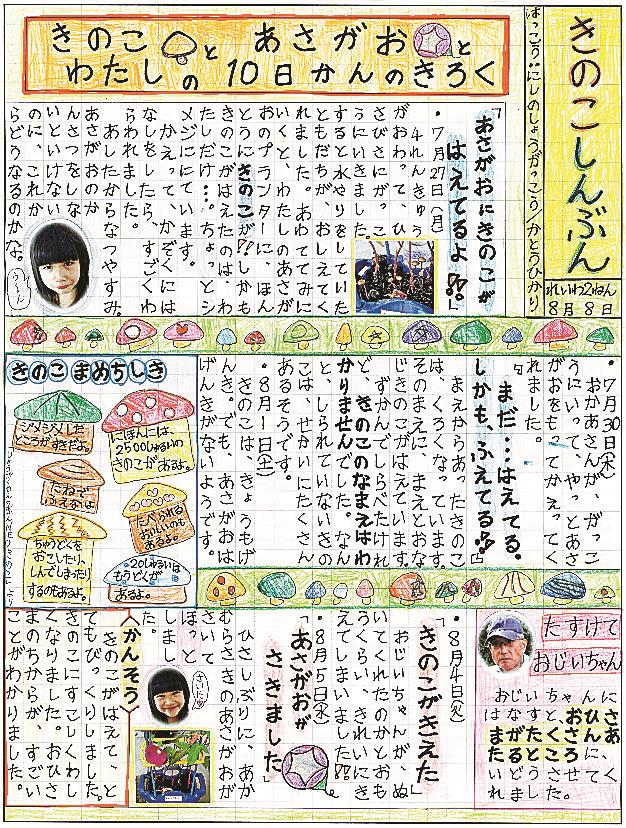 きのこしんぶん
はっこう：にしのしょうがっこう/かとうひかり
れいわ2ねん
8月8日
きのこと あさがおと
わたしの10日かんのきろく
「あさがおにきのこが
はえてるよ!?」
・7月27日(月)
4れんきゅう
がおわって、ひ
さびさにがっこ
うにいきました。
すると水やりをしていた
ともだちが、おしえてく
れました。あわててみに
いくと、わたしのあさが
おのプランターに、ほん
とうにきのこが!!しかも
きのこがはえたのは、わ
たしだけ…。ちょっとシ
メジににています。
かえって、かぞくには
なしをしたら、すごくわ
らわれました。
あしたからなつやすみ。
あさがおのか
んさつをしな
いといけない
のに、これか
らどうなるのかな。
うーん
・7月30日(木)
おかあさんが、がっこ
うにいって、やっとあさ
がおをもってかえってく
れました。
「まだ…はえてる。
しかも、ふえてる!?」
まえからあったきのこ
は、くろくなっています。
そのまえに、まえとおな
じきのこがはえています。
ずかんでしらべたけれ
ど、きのこのなまえはわ
かりませんでした。なん
と、しられていないきの
こは、せかいにたくさん
あるそうです。
・8月1日(土)
きのこは、きょうもげ
んき。でも、あさがおは
げんきがないようです。
きのこまめちしき
にほんには、
2500しゅるいの
きのこがあるよ。
ジメジメした
ところがすきだよ。
たねで
ふえないよ
たべられる
おいしいのも
あるよ。
ちゅうどくを
おこしたり、
しんでしまったり
するのもあるよ。
20しゅるいは
もうどくが
あるよ。
たすけて
おじいちゃん
おじいちゃんに
はなすと、さあ
おさひんに、
たくさ
がたくさん
まがたるところ
においてくれました。
・8月4日(火)
「きのこがきえた」
おじいちゃんが、ぬ
いてくれたのかとおも
うくらい、きれいにき
えてしまいました!!
・8月5日(水)
「あさがおが
さきました」
ひさしぶりに、あか
むらさきのあさがおが
さいて
ほっと
しまし
た。
かんそう
きのこがはえて、と
てもびっくりしました。
きのこにすこしくわし
くなりました。おひさ
まのちからが、すごい
ことがわかりました。